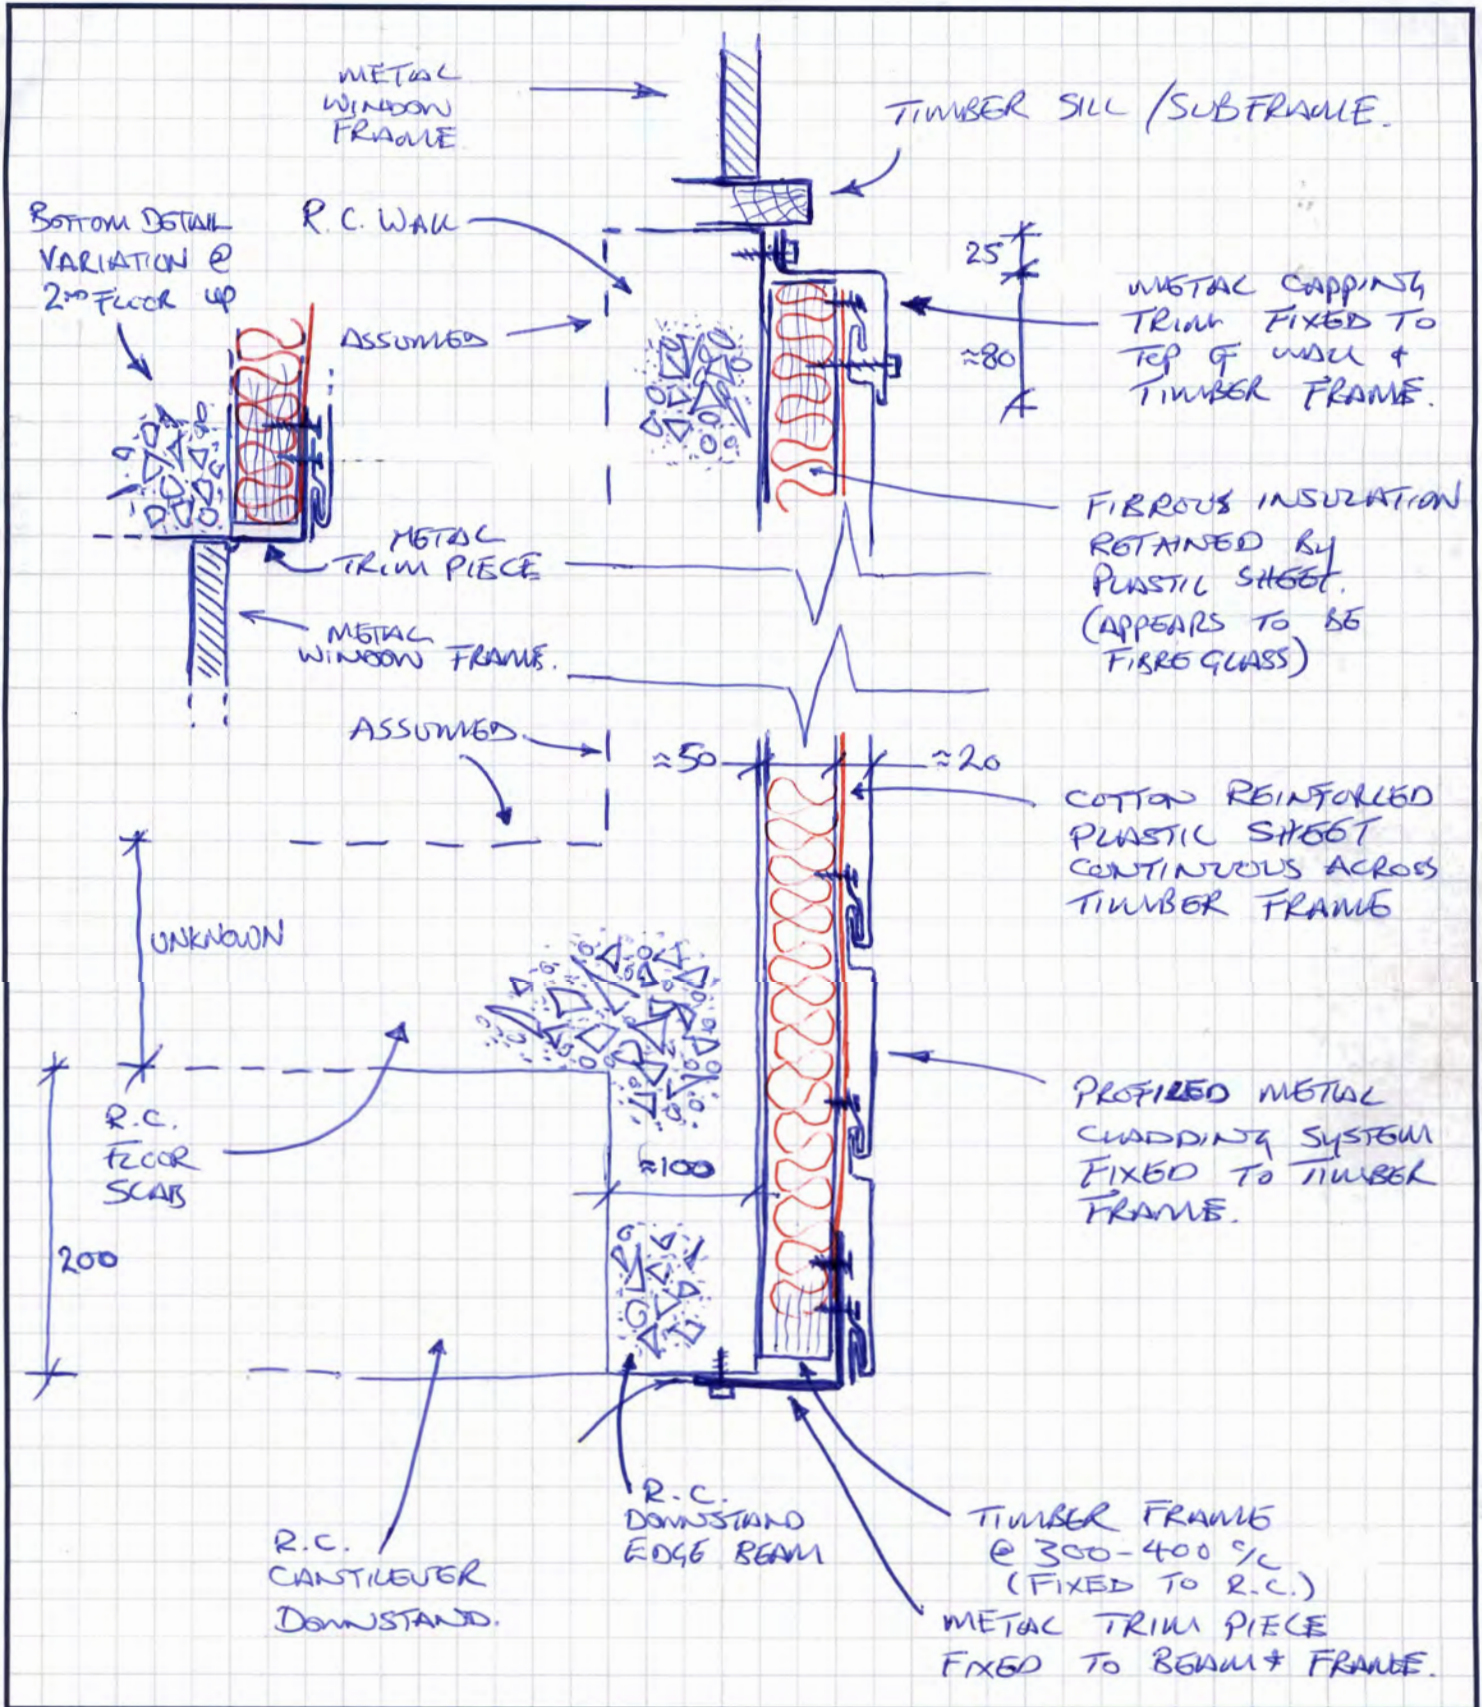 METAL
WINDOW
FRAME
TIMBER SILL / SUBFRAME.
BOTTOM DETAIL
VARIATION @
2ND FLOOR UP
R.C. WALL
ASSUMED
25
≈80
METAL CAPPING
TRIM FIXED TO
TOP OF WALL &
TIMBER FRAME.
FIBROUS INSULATION
RETAINED BY
PLASTIC SHEET.
(APPEARS TO BE
FIBREGLASS)
METAL
TRIM PIECE
METAL
WINDOW FRAME.
ASSUMED
≈50
≈20
COTTON REINFORCED
PLASTIC SHEET
CONTINUOUS ACROSS
TIMBER FRAME
UNKNOWN
PROFILED METAL
CLADDING SYSTEM
FIXED TO TIMBER
FRAME.
R.C.
FLOOR
SLAB
≈100
200
R.C.
DOWNSTAND
EDGE BEAM
R.C.
CANTILEVER
DOWNSTAND.
TIMBER FRAME
@ 300-400 c/c
(FIXED TO R.C.)
METAL TRIM PIECE
FIXED TO BEAM & FRAME.